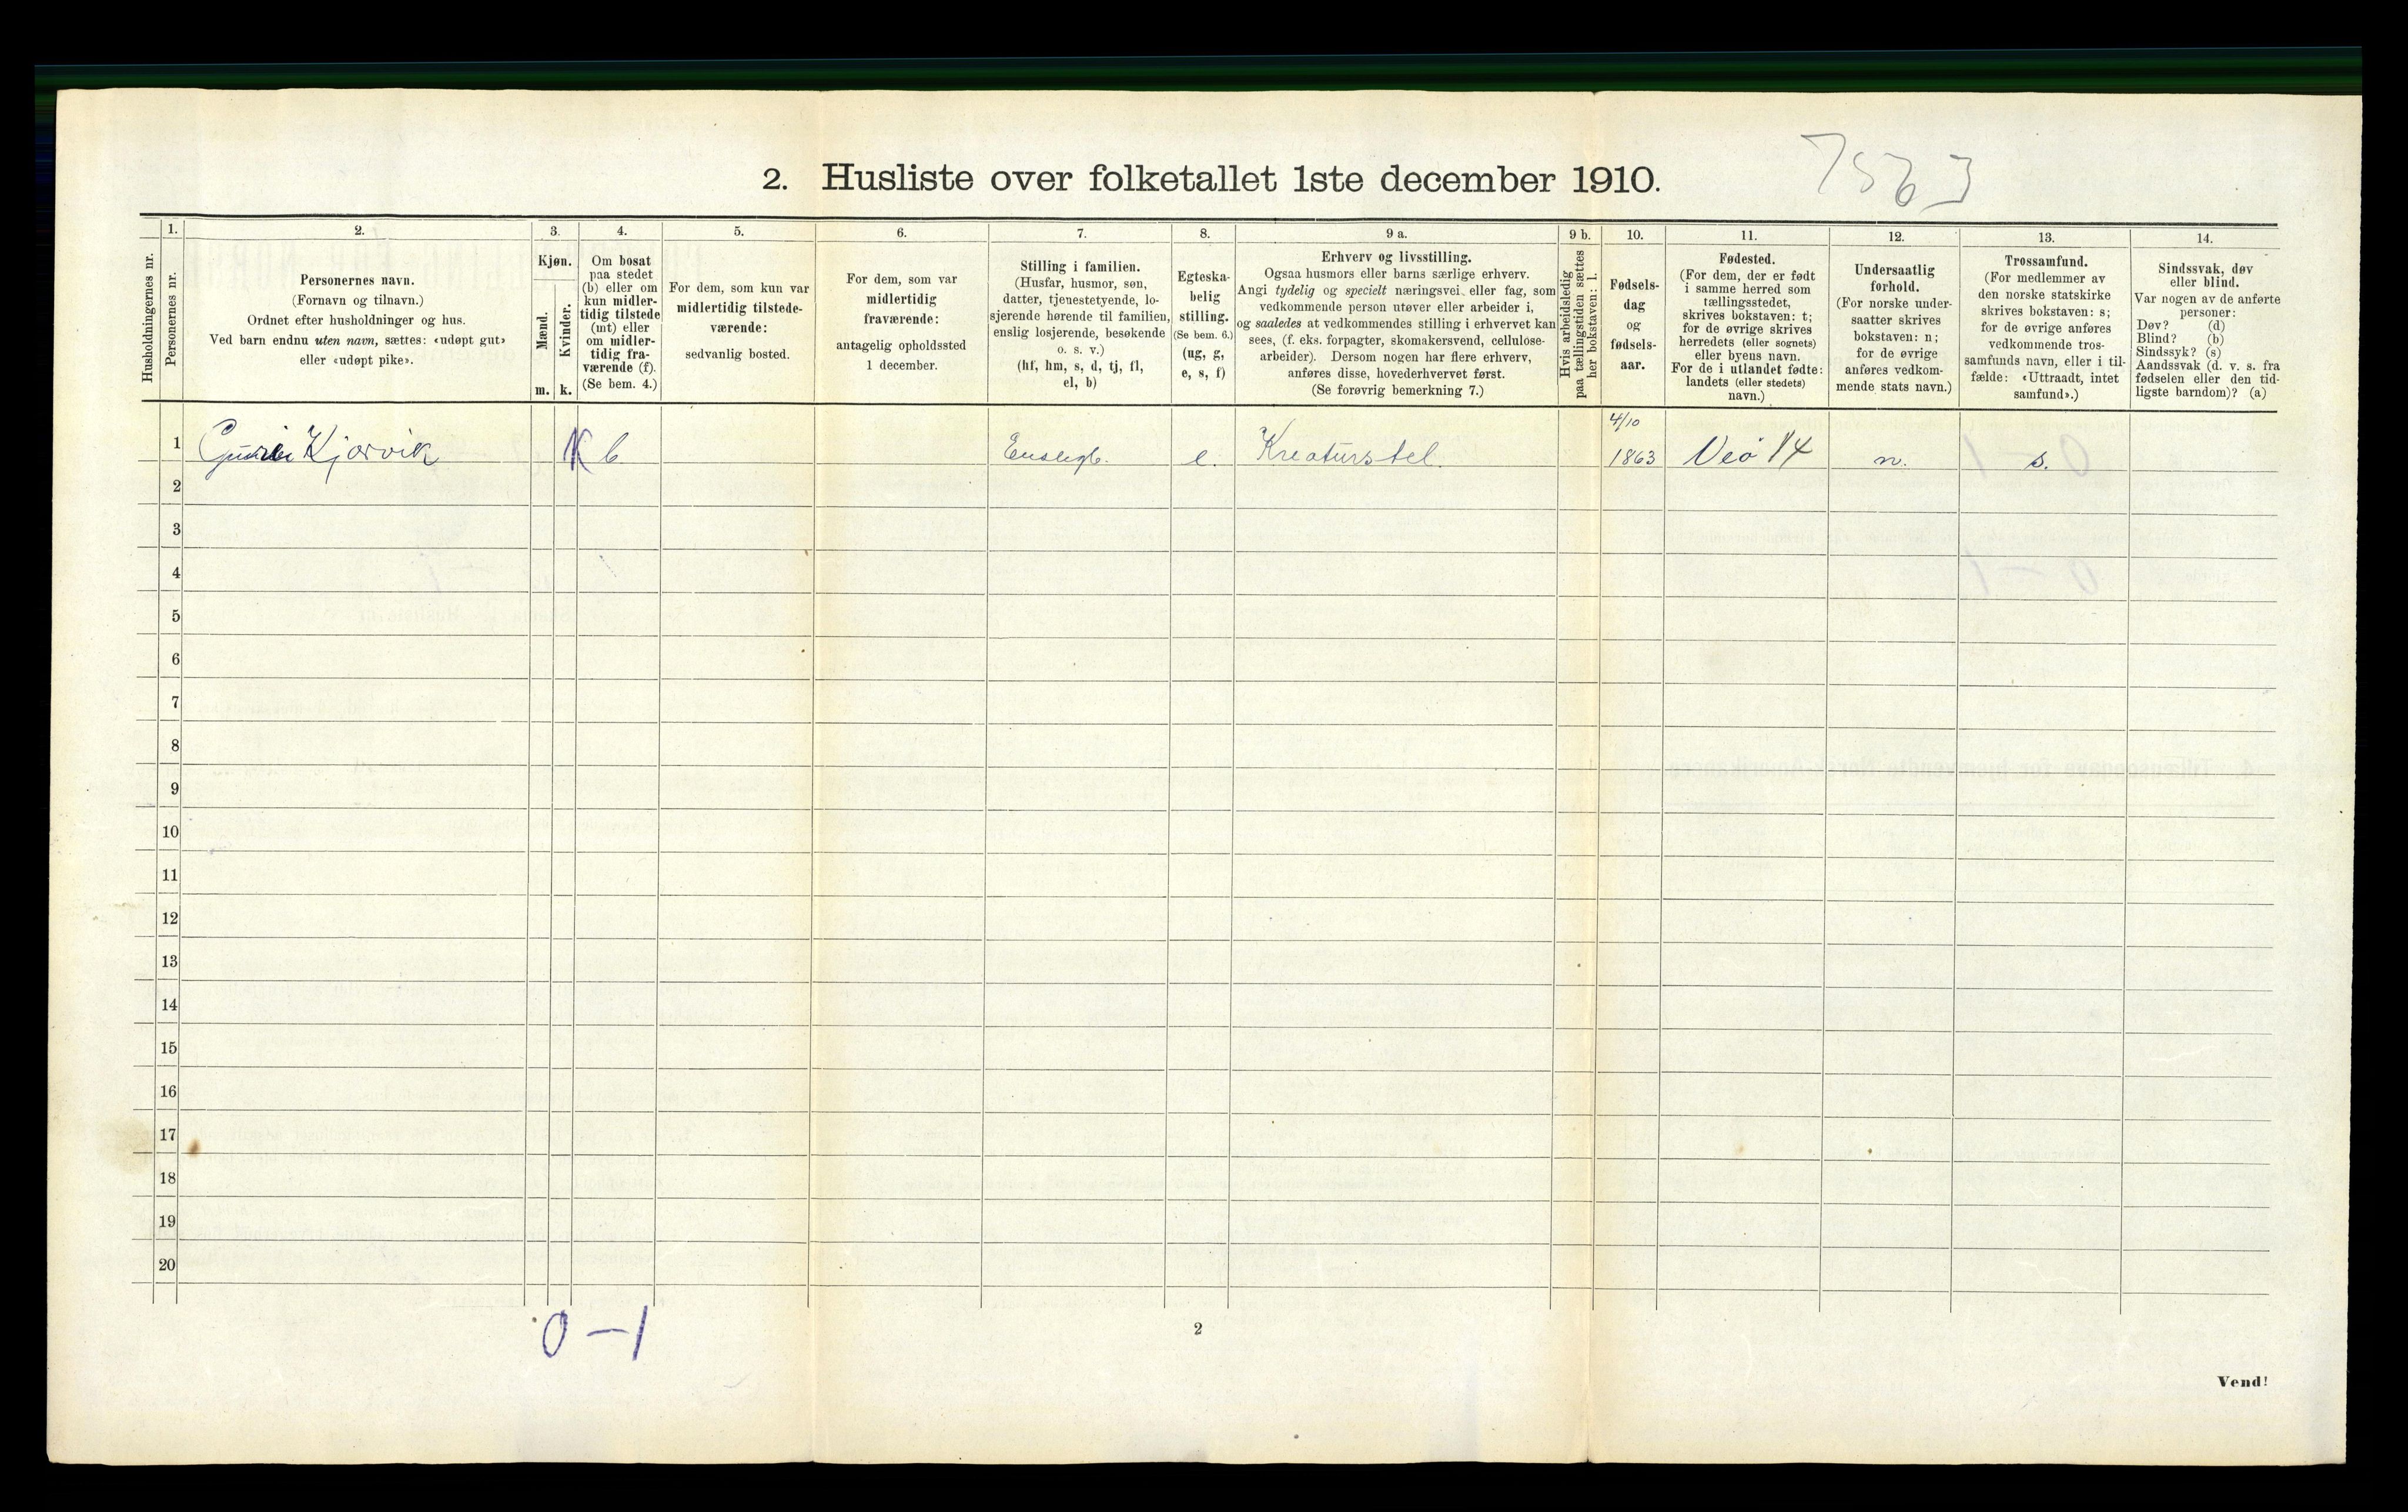 7563
2. Husliste over folketallet 1ste december 1910.
Husholdningernes nr.
1.
Personernes nr.
2.
Personernes navn.
(Fornavn og tilnavn.)
Ordnet efter husholdninger og hus.
Ved barn endnu uten navn, sættes: «udøpt gut»
eller «udøpt pike».
3.
Kjøn.
Mænd.
m.
Kvinder.
k.
4.
Om bosat
paa stedet
(b) eller om
kun midler-
tidig tilstede
(mt) eller
om midler-
tidig fra-
værende (f).
(Se bem. 4.)
5.
For dem, som kun var
midlertidig tilstede-
værende:
sedvanlig bosted.
6.
For dem, som var
midlertidig
fraværende:
antagelig opholdssted
1 december.
7.
Stilling i familien.
(Husfar, husmor, søn,
datter, tjenestetyende, lo-
sjerende hørende til familien,
enslig losjerende, besøkende
o. s. v.)
(hf, hm, s, d, tj, fl,
el, b)
8.
Egteska-
belig
stilling.
(Se bem. 6.)
(ug, g,
e, s, f)
9 a.
Erhverv og livsstilling.
Ogsaa husmors eller barns særlige erhverv.
Angi tydelig og specielt næringsvei eller fag, som
vedkommende person utøver eller arbeider i,
og saaledes at vedkommendes stilling i erhvervet kan
sees, (f. eks. forpagter, skomakersvend, cellulose-
arbeider). Dersom nogen har flere erhverv,
anføres disse, hovederhvervet først.
(Se forøvrig bemerkning 7.)
9 b.
Hvis arbeidsledig
paa tællingstiden sættes
her bokstaven: l.
10.
Fødsels-
dag
og
fødsels-
aar.
11.
Fødested.
(For dem, der er født
i samme herred som
tællingsstedet,
skrives bokstaven: t;
for de øvrige skrives
herredets (eller sognets)
eller byens navn.
For de i utlandet fødte:
landets (eller stedets)
navn.)
12.
Undersaatlig
forhold.
(For norske under-
saatter skrives
bokstaven: n;
for de øvrige
anføres vedkom-
mende stats navn.)
13.
Trossamfund.
(For medlemmer av
den norske statskirke
skrives bokstaven: s;
for de øvrige anføres
vedkommende tros-
samfunds navn, eller i til-
fælde: «Uttraadt, intet
samfund».)
14.
Sindssvak, døv
eller blind.
Var nogen av de anførte
personer:
Døv? (d)
Blind? (b)
Sindssyk? (s)
Aandssvak (d. v. s. fra
fødselen eller den tid-
ligste barndom)? (a)
4/10
1 Kjørvik K b Enslig e. Kreaturstel. 1863 Veø 14 n. s.
2
3
4
5
6
7
8
9
10
11
12
13
14
15
16
17
18
19
20
0-1
2
Vend!